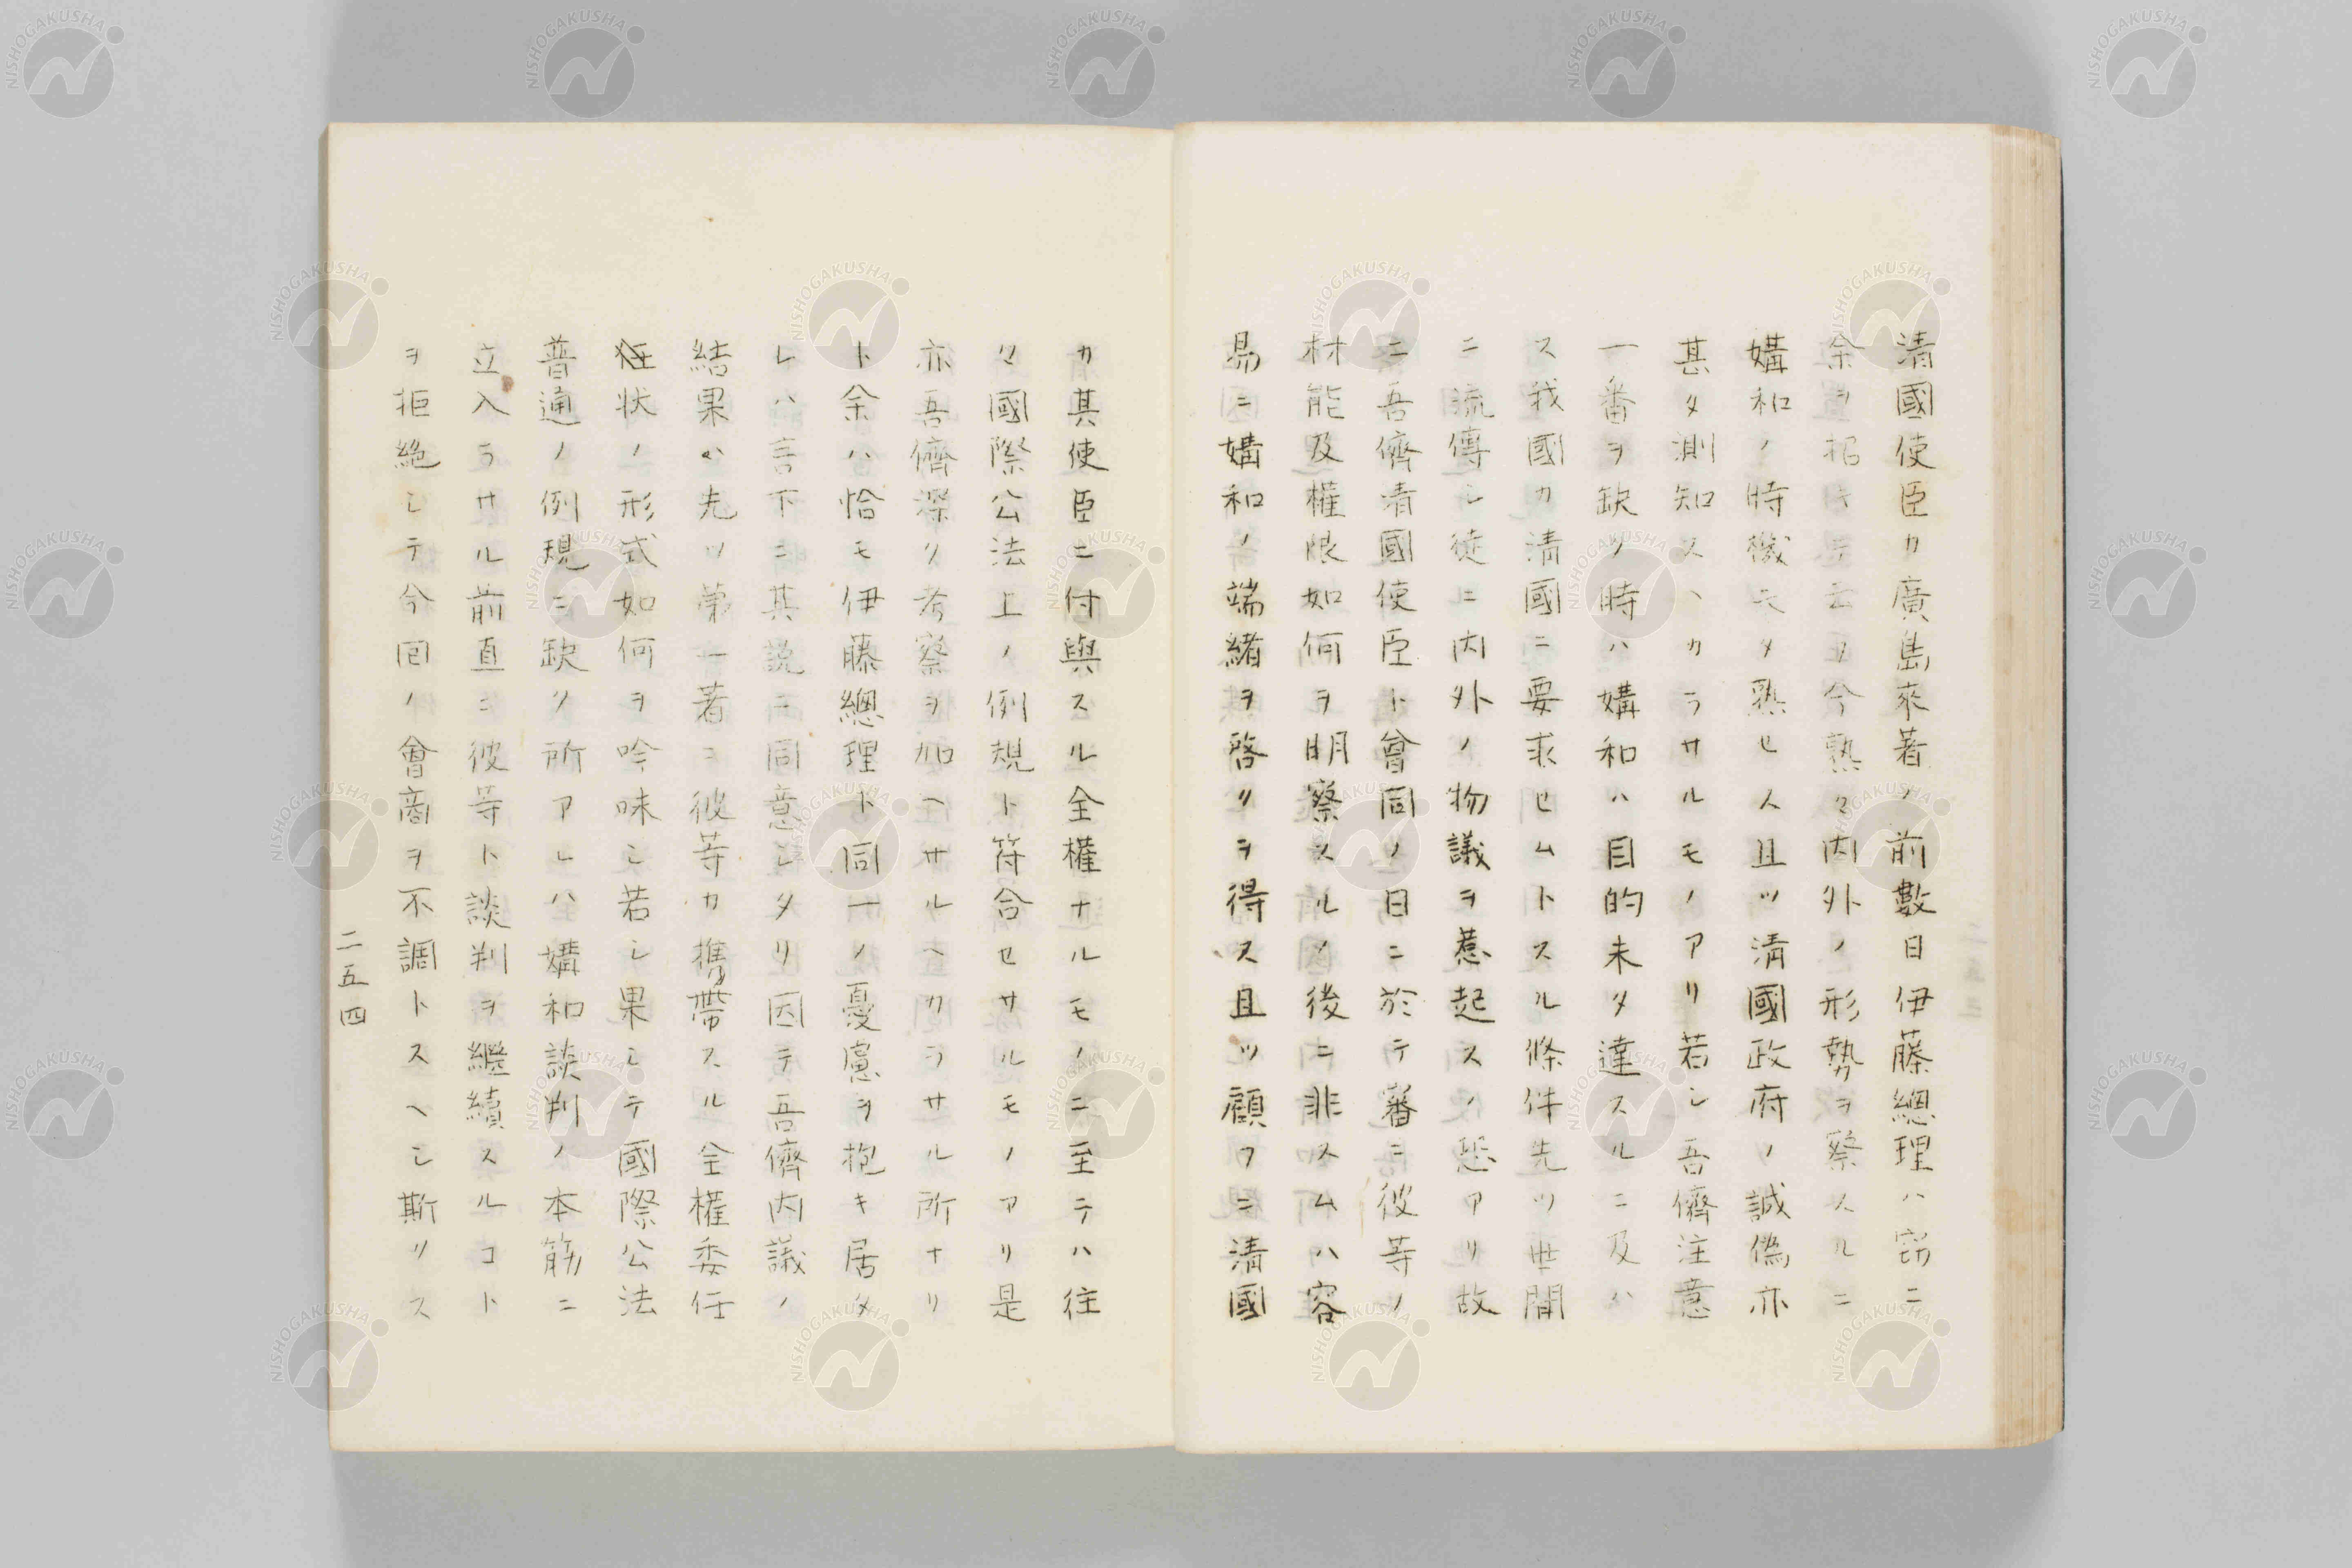 清國使臣カ廣島來著ノ前數日伊藤總理ハ窃ニ
余ヲ招キテ云フ今熟々内外ノ形勢ヲ察スルニ
媾和ノ時機モタ熟セス且ツ清國政府ノ誠僞亦
甚タ測知スヘカラサルモノアリ若シ吾儕注意
一番ヲ缺ク時ハ媾和ハ目的未タ達スルニ及ハ
ス我國カ清國ニ要求セムトスル條件先ツ世間
ニ流傳シ徒ニ内外ノ物議ヲ惹起スノ恐アリ故
ニ吾儕清國使臣ト會同ノ日ニ於テ審ニ彼等ノ
材能及權限如何ヲ明察スルノ後ニ非スムハ容
易ニ媾和ノ端緒ヲ啓クヲ得ス且ツ顧フニ清國
カ其使臣ニ付與スル全權ナルモノニ至テハ往
々國際公法上ノ例規ト符合セサルモノアリ是
亦吾儕深ク考察ヲ加ヘサルヘカラサル所ナリ
ト余ハ恰モ伊藤總理ト同一ノ憂慮ヲ抱キ居タ
レハ言下ニ其説ニ同意シタリ因テ吾儕内議ノ
結果ハ先ツ第一著ヲ彼等カ携帶スル全權委任
狀ノ形式如何ヲ吟味シ若シ果シテ國際公法
普通ノ例規ニ缺ク所アレハ媾和談判ノ本筋ニ
立入ラサル前直ニ彼等ト談判ヲ繼續スルコト
ヲ拒絶シテ今回ノ會商ヲ不調トスヘシ斯クス
二五四
NISHOGAKUSHA